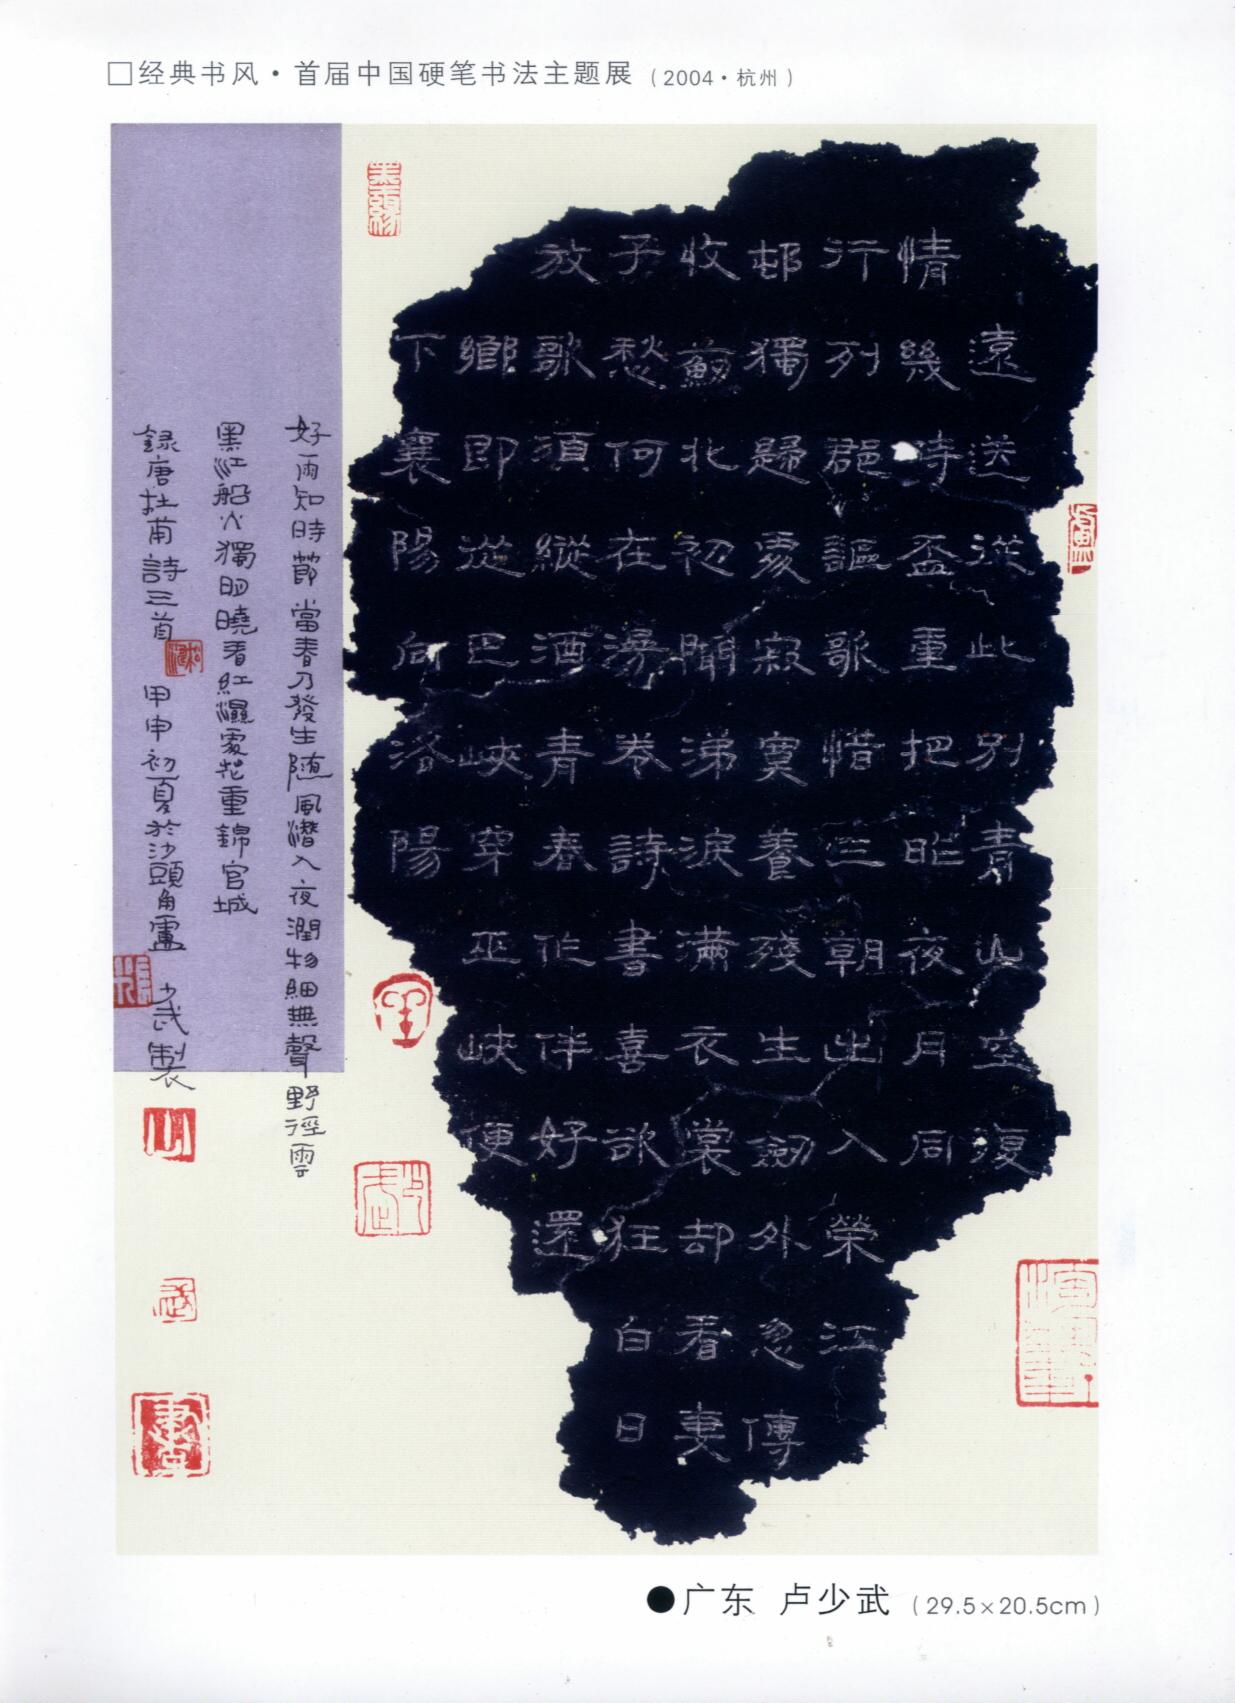 □经典书风·首届中国硬笔书法主题展（2004·杭州）
遠送從此別青山空復
情幾時盃重把昨夜月同
行列郡謳歌惜三朝出入榮江
邨獨歸處寂寞養殘生劒外忽傳
收薊北初聞涕淚滿衣裳却看妻
子愁何在漫卷詩書喜欲狂白日
放歌須縱酒青春作伴好還
鄉即從巴峽穿巫峽便
下襄陽向洛陽
好雨知時節當春乃發生随風潛入夜潤物細無聲野徑雲
黑江船火獨明曉看紅濕處花重錦官城
録唐杜甫詩三首 甲申初夏於沙頭角盧少武製
●广东 卢少武（29.5×20.5cm）